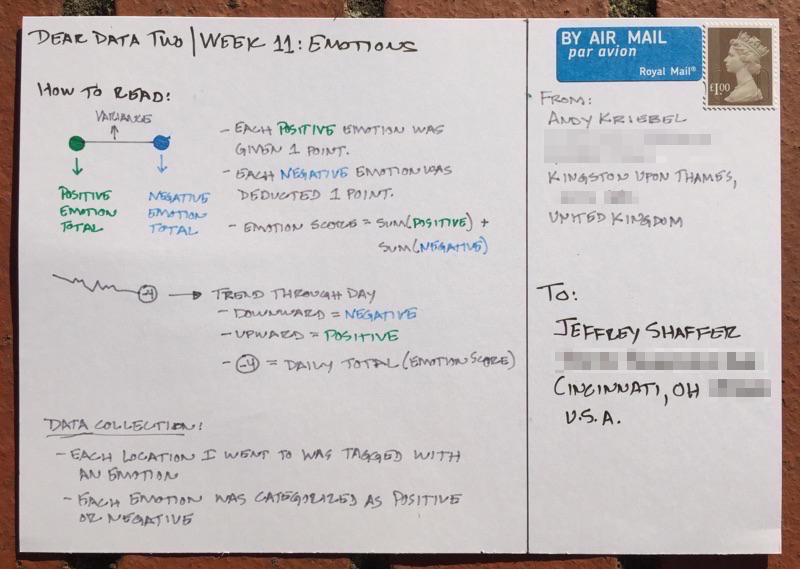 DEAR DATA TWO | WEEK 11: EMOTIONS
HOW TO READ:
VARIANCE
POSITIVE
EMOTION
TOTAL
NEGATIVE
EMOTION
TOTAL
- EACH POSITIVE EMOTION WAS
GIVEN 1 POINT.
- EACH NEGATIVE EMOTION WAS
DEDUCTED 1 POINT.
- EMOTION SCORE = SUM(POSITIVE) +
SUM(NEGATIVE)
-4
TREND THROUGH DAY
- DOWNWARD = NEGATIVE
- UPWARD = POSITIVE
- -4 = DAILY TOTAL (EMOTION SCORE)
DATA COLLECTION:
- EACH LOCATION I WENT TO WAS TAGGED WITH
AN EMOTION
- EACH EMOTION WAS CATEGORIZED AS POSITIVE
OR NEGATIVE
BY AIR MAIL
par avion
Royal Mail®
£1.00
FROM:
ANDY KRIEBEL
KINGSTON UPON THAMES,
UNITED KINGDOM
TO:
JEFFREY SHAFFER
CINCINNATI, OH
U.S.A.